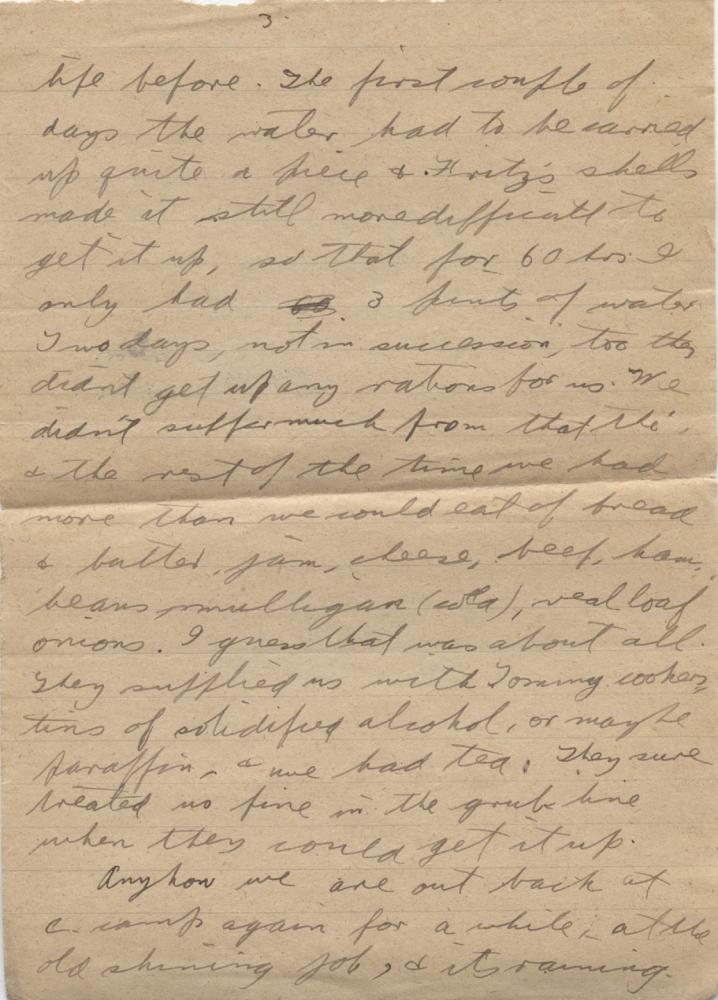 3.
life before. The first couple of
days the water had to be carried
up quite a piece & Fritz's shells
made it still more difficult to
get it up, so that for 60 hrs I
only had 3 pints of water
Two days, not in succession, too they
didn't get up any rations for us. We
didn't suffer much from that tho',
& the rest of the time we had
more than we could eat of bread
& butter, jam, cheese, beef, ham,
beans mulligan (cold), veal loaf
onions. I guess that was about all.
They supplied us with Tommy cookers,
tins of solidified alcohol, or maybe
paraffin, & we had tea. They sure
treated us fine in the grub line
when they could get it up.
Anyhow we are out back at
a camp again for a while, at the
old shining job, & its raining.